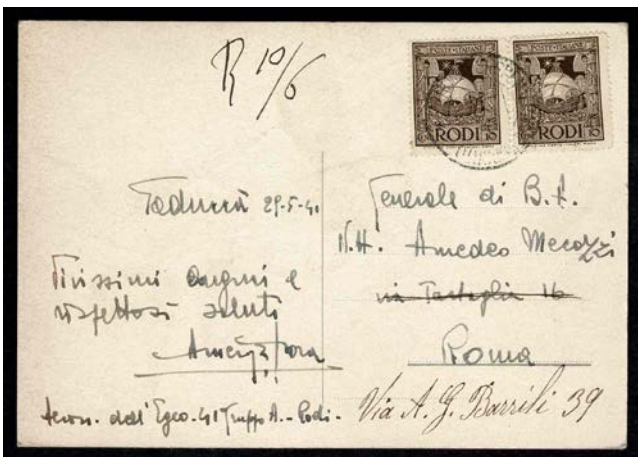 R 10/6
POSTE ITALIANE
RODI 10
POSTE ITALIANE
RODI 10
29-5-41
Vivissimi auguri e
rispettosi saluti
Aeron. dell'Egeo - 41 Gruppo A. - Rodi -
Generale di B.A.
N.H. Amedeo Mecozzi
via Tartaglia 16
Roma
Via A. G. Barrili 39